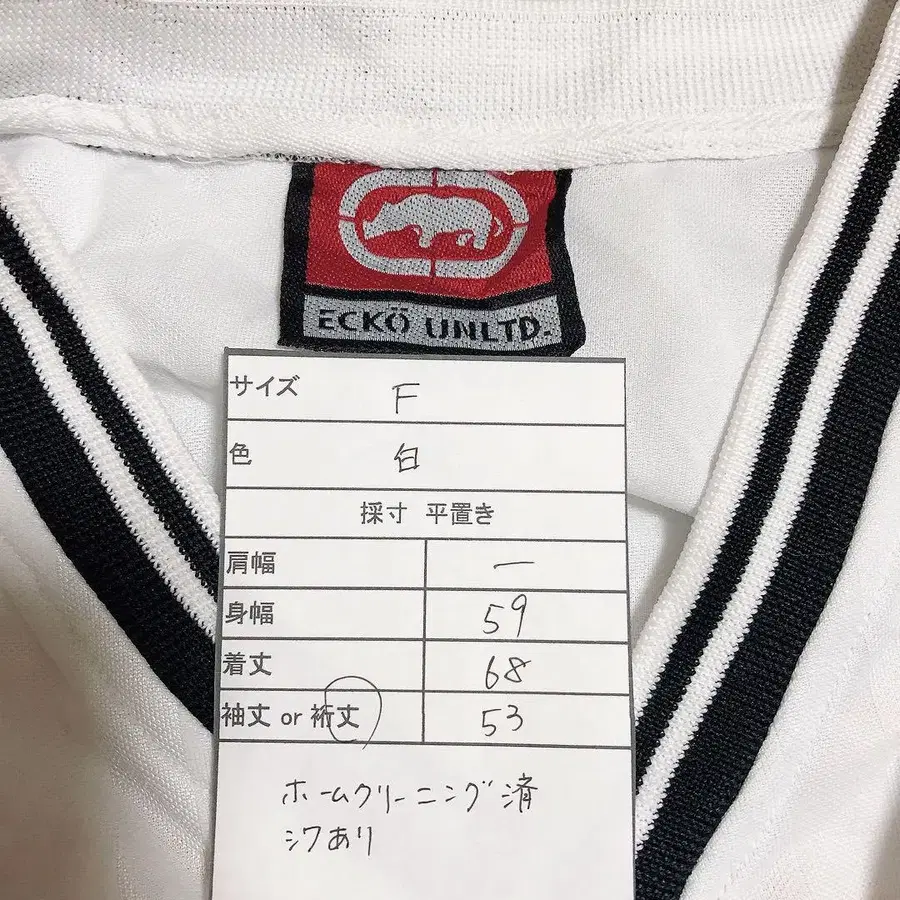 ECKŌ UNLTD.
サイズ F
色 白
採寸 平置き
肩幅 ー
身幅 59
着丈 68
袖丈 or 裄丈 53
ホームクリーニング済
シワあり